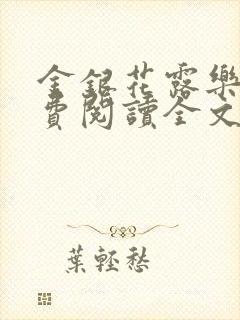 金銀花露樂
費閱讀全文
葉輕愁